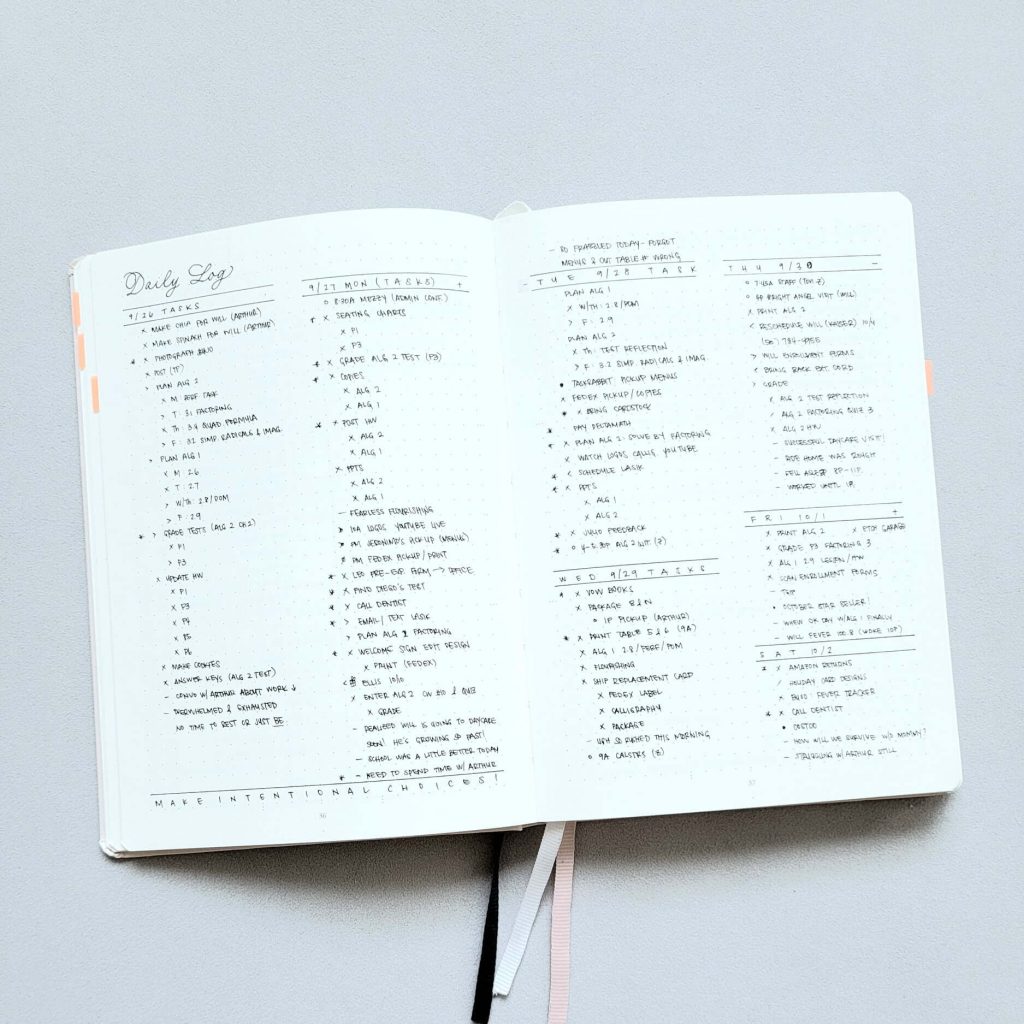 Daily Log
9/26 TASKS
x MAKE CHIA FOR WILL (ARTHUR)
x MAKE SPINACH FOR WILL (ARTHUR)
* x PHOTOGRAPH
x POST (TP)
> PLAN ALG 2
x M: PERF TASK
> T: 3.1 FACTORING
x Th: 3.4 QUAD. FORMULA
> F: 3.2 SIMP. RADICALS & IMAG.
> PLAN ALG 1
x M: 2.6
x T: 2.7
> W/Th: 2.8/POM
> F: 2.9
* > GRADE TESTS (ALG 2 CH 2)
x P1
x P3
x UPDATE HW
x P1
x P3
x P4
x P5
x P6
x MAKE COOKIES
x ANSWER KEYS (ALG 2 TEST)
- CONVO W/ ARTHUR ABOUT WORK ↓
- OVERWHELMED & EXHAUSTED
NO TIME TO REST OR JUST BE
9/27 MON (TASKS) +
o 8:30A MEZZY (ADMIN CONF.)
* x SEATING CHARTS
x P1
x P3
* x GRADE ALG 2 TEST (P3)
* x COPIES
x ALG 2
x ALG 1
* x POST HW
x ALG 2
x ALG 1
x PPTS
x ALG 2
x ALG 1
- FEARLESS FLOURISHING
> 10A LOGOS YOUTUBE LIVE
PM JERONIMO'S PICKUP (MENUS)
PM FEDEX PICKUP/PRINT
* x LEO PRE-EXP. FORM → OFFICE
* x FIND DIEGO'S TEST
* x CALL DENTIST
* > EMAIL/TEXT LASIK
> PLAN ALG 2 FACTORING
* x WELCOME SIGN EDIT DESIGN
x PRINT (FEDEX)
< ELLIS 10/10
x ENTER ALG 2 CW #10 & QUIZ
x GRADE
- REALIZED WILL IS GOING TO DAYCARE
SOON! HE'S GROWING SO FAST!
- SCHOOL WAS A LITTLE BETTER TODAY
* - NEED TO SPEND TIME W/ ARTHUR
MAKE INTENTIONAL CHOICES!
36
- SO FRAZZLED TODAY - FORGOT
MENUS & CUT TABLE # WRONG
TUE 9/28 TASK
PLAN ALG 1
x W/Th: 2.8/POM
> F: 2.9
PLAN ALG 2
x Th: TEST REFLECTION
> F: 3.2 SIMP. RADICALS & IMAG.
• TASKRABBIT PICKUP MENUS
x FEDEX PICKUP/COPIES
* x BRING CARDSTOCK
* PAY DELTAMATH
* x PLAN ALG 2: SOLVE BY FACTORING
x WATCH LOGOS CALLIG YOUTUBE
* < SCHEDULE LASIK
* x PPTS
x ALG 1
x ALG 2
* x JULIO FEEDBACK
* o 4-5:30P ALG 2 (Z)
WED 9/29 TASKS
* x VOW BOOKS
x PACKAGE E & N
o 1P PICKUP (ARTHUR)
* x PRINT TABLE 5 & 6 (9A)
x ALG 1 2.8/PERF/POM
x FLOURISHING
x SHIP REPLACEMENT CARD
x FEDEX LABEL
x CALLIGRAPHY
x PACKAGE
- UGH SO RUSHED THIS MORNING
o 9A CALSTRS (B)
THU 9/30 -
o 7:45A STAFF (TEN Z)
o 5P BRIGHT ANGEL VISIT (WILL)
x PRINT ALG 2
< RESCHEDULE WILL (KAISER) 10/4
> WILL ENROLLMENT FORMS
< BRING BACK EXT. CORD
> GRADE
x ALG 2 TEST REFLECTION
ALG 2 FACTORING QUIZ 3
x ALG 2 HW
- SUCCESSFUL DAYCARE VISIT!
- RIDE HOME WAS ROUGH
- FELL ASLEEP 8P-11P
- WORKED UNTIL
FRI 10/1 +
x PRINT ALG 2 x PTCH GARAGE
x GRADE P3 FACTORING 3
x ALG 1 2.9 LESSON/HW
x SCAN ENROLLMENT FORMS
• OCTOBER STAR SELLER!
- WHEW OK DAY W/ALG 1 FINALLY
- WILL FEVER 100.8 (WOKE 10P)
SAT 10/2
* x AMAZON RETURNS
HOLIDAY CARD DESIGNS
x BUJO: FEVER TRACKER
* x CALL DENTIST
• COSTCO
- HOW WILL WE SURVIVE W/O MOMMY?
- STRUGGLING W/ARTHUR STILL
37